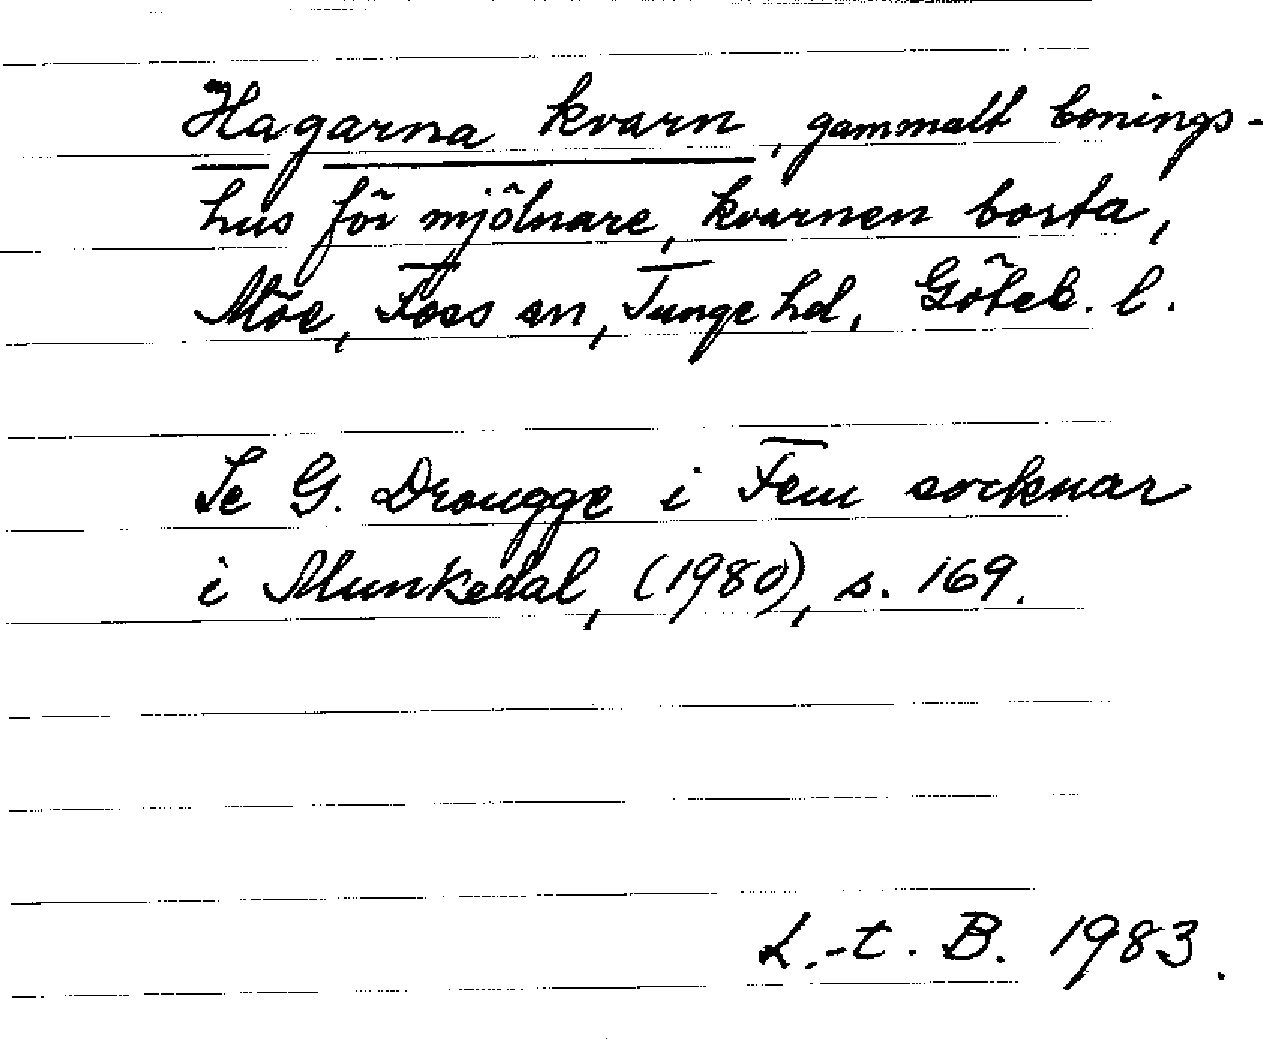 Hagarna kvarn, gammalt bonings-
hus för mjölnare, kvarnen borta,
Möe, Foss sn, Tunge hd, Göteb. l.
Se G. Drougge i Fem socknar
i Munkedal, (1980), s. 169.
L.-t. B. 1983.